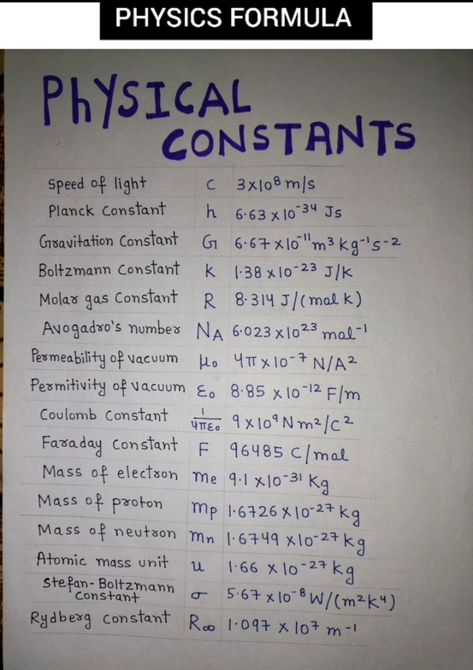 PHYSICS FORMULA
PhYSICAL
CONSTANTS
Speed of light c 3×10⁸ m/s
Planck Constant h 6.63 ×10⁻³⁴ Js
Gravitation Constant G 6.67×10⁻¹¹ m³ kg⁻¹s⁻²
Boltzmann Constant k 1.38 ×10⁻²³ J/k
Molar gas Constant R 8.314 J/(mol k)
Avogadro's number N_A 6.023 ×10²³ mol⁻¹
Permeability of vacuum μ₀ 4π ×10⁻⁷ N/A²
Permitivity of vacuum ε₀ 8.85 ×10⁻¹² F/m
Coulomb Constant 1/4πε₀ 9 ×10⁹ N m²/C²
Faraday Constant F 96485 C/mol
Mass of electron me 9.1 ×10⁻³¹ Kg
Mass of proton mp 1.6726 ×10⁻²⁷ kg
Mass of neutron mn 1.6749 ×10⁻²⁷ kg
Atomic mass unit u 1.66 ×10⁻²⁷ kg
Stefan-Boltzmann
Constant σ 5.67 ×10⁻⁸ W/(m²k⁴)
Rydberg constant R∞ 1.097 × 10⁷ m⁻¹